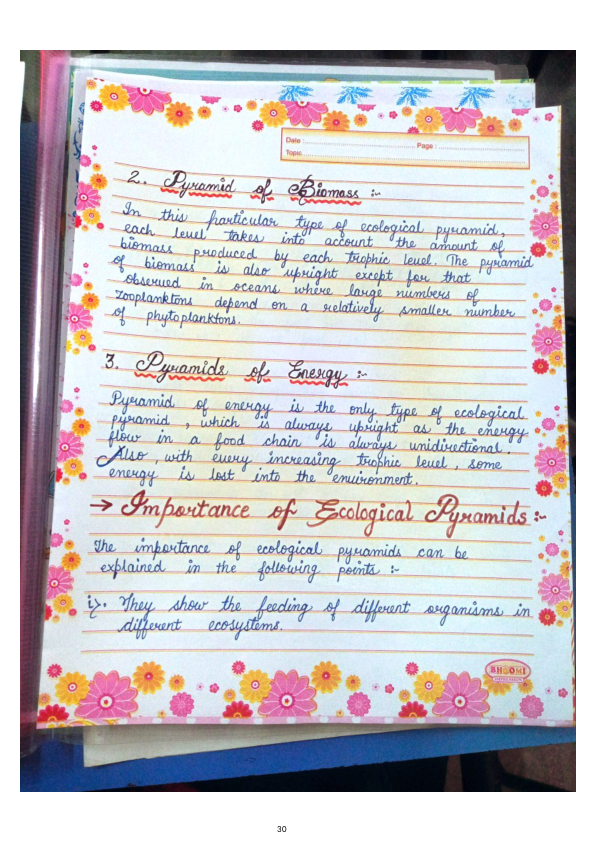 Date : Page :
Topic
2. Pyramid of Biomass :-
In this particular type of ecological pyramid,
each level takes into account the amount of
biomass produced by each trophic level. The pyramid
of biomass is also upright except for that
observed in oceans where large numbers of
zooplanktons depend on a relatively smaller number
of phytoplanktons.
3. Pyramids of Energy :-
Pyramid of energy is the only type of ecological
pyramid, which is always upright as the energy
flow in a food chain is always unidirectional.
Also, with every increasing trophic level, some
energy is lost into the environment.
→ Importance of Ecological Pyramids :-
The importance of ecological pyramids can be
explained in the following points :-
i>. They show the feeding of different organisms in
different ecosystems.
BHOOMI
30